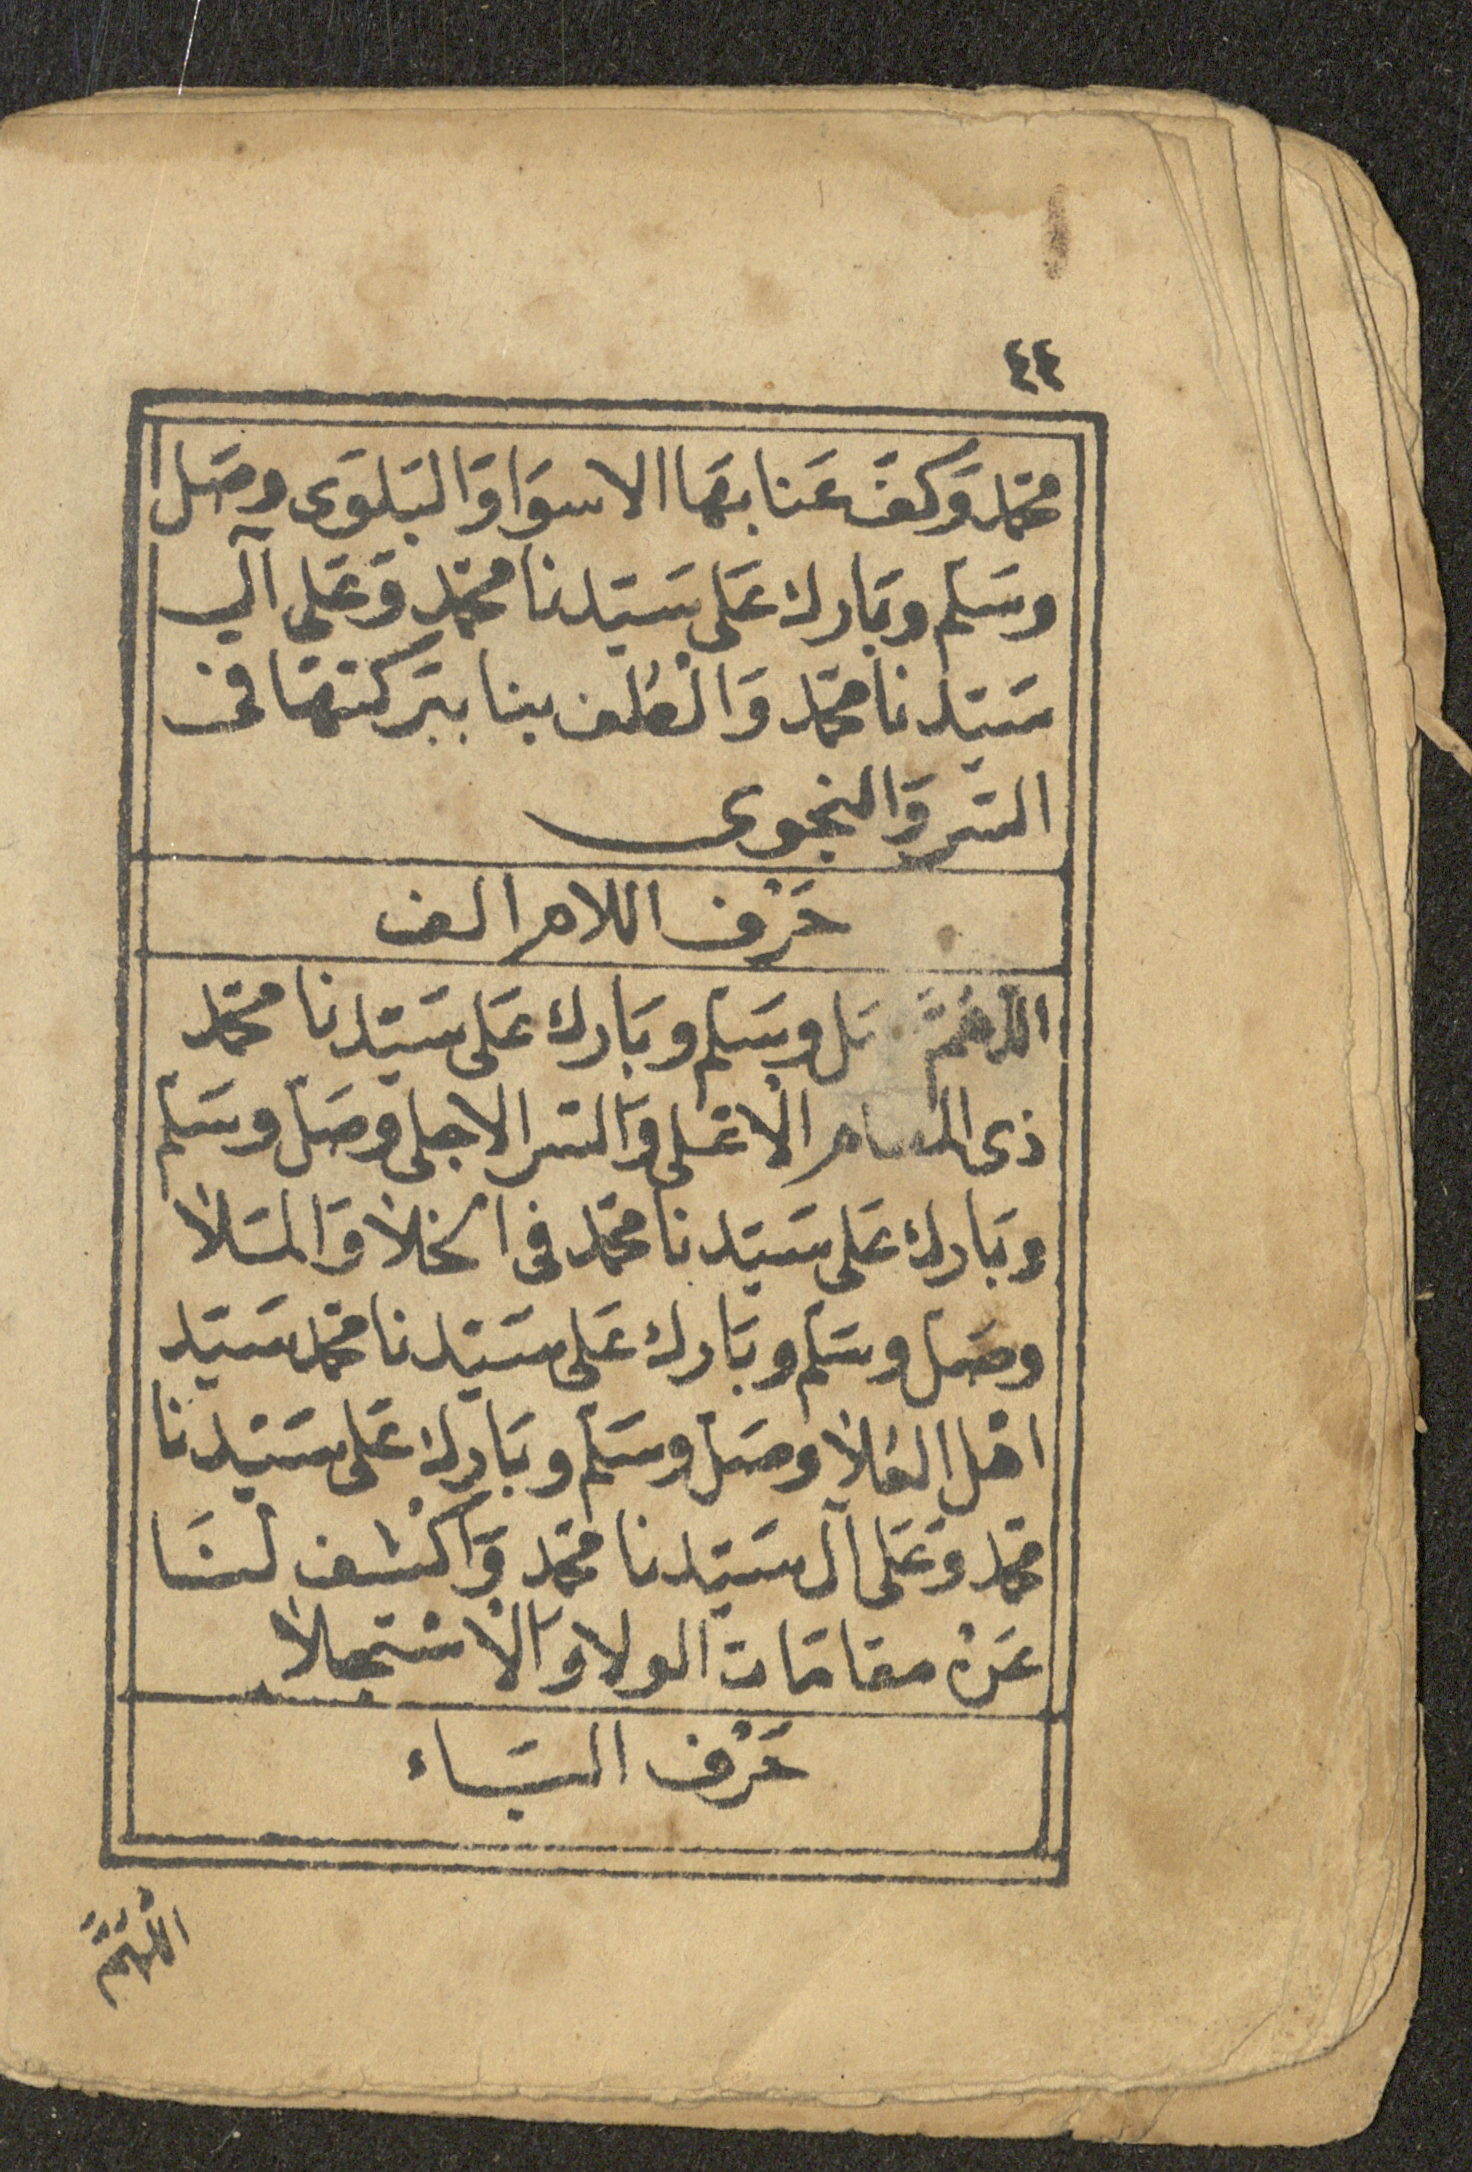 ٤٤
محمّد وَكفّ عَنا بهَا الاسوَا وَالبَلوَى وصَل
وسَلم وبَارك عَلى سَيّدنا محمّدٍ وَعَلى آلِ
سَيّدنا محمّد وَالْطُف بنا ببَركتهَا فى
السّر وَالنجوى
حَرْف اللام الف
اللهُمَّ صَل وسَلم وبَارك عَلى سَيّدنا محمّد
ذى المقام الْاعْلى وَالسّر الاجلى وصَل وسَلم
وبَارك عَلى سَيّدنا محمّد فى الخلأ وَالمَلأ
وصَل وسَلم وبَارك عَلى سَيّدنا محمّد سَيّد
اهْل العُلا وصَل وسَلم وبَارك عَلى سَيّدنا
محمّد وَعَلى آل سَيّدنا محمّد وَاكْشف لنَا
عَنْ مقامَات الولا وَالْاسْتجلا
حَرْف اليَاء
اللهُمَّ